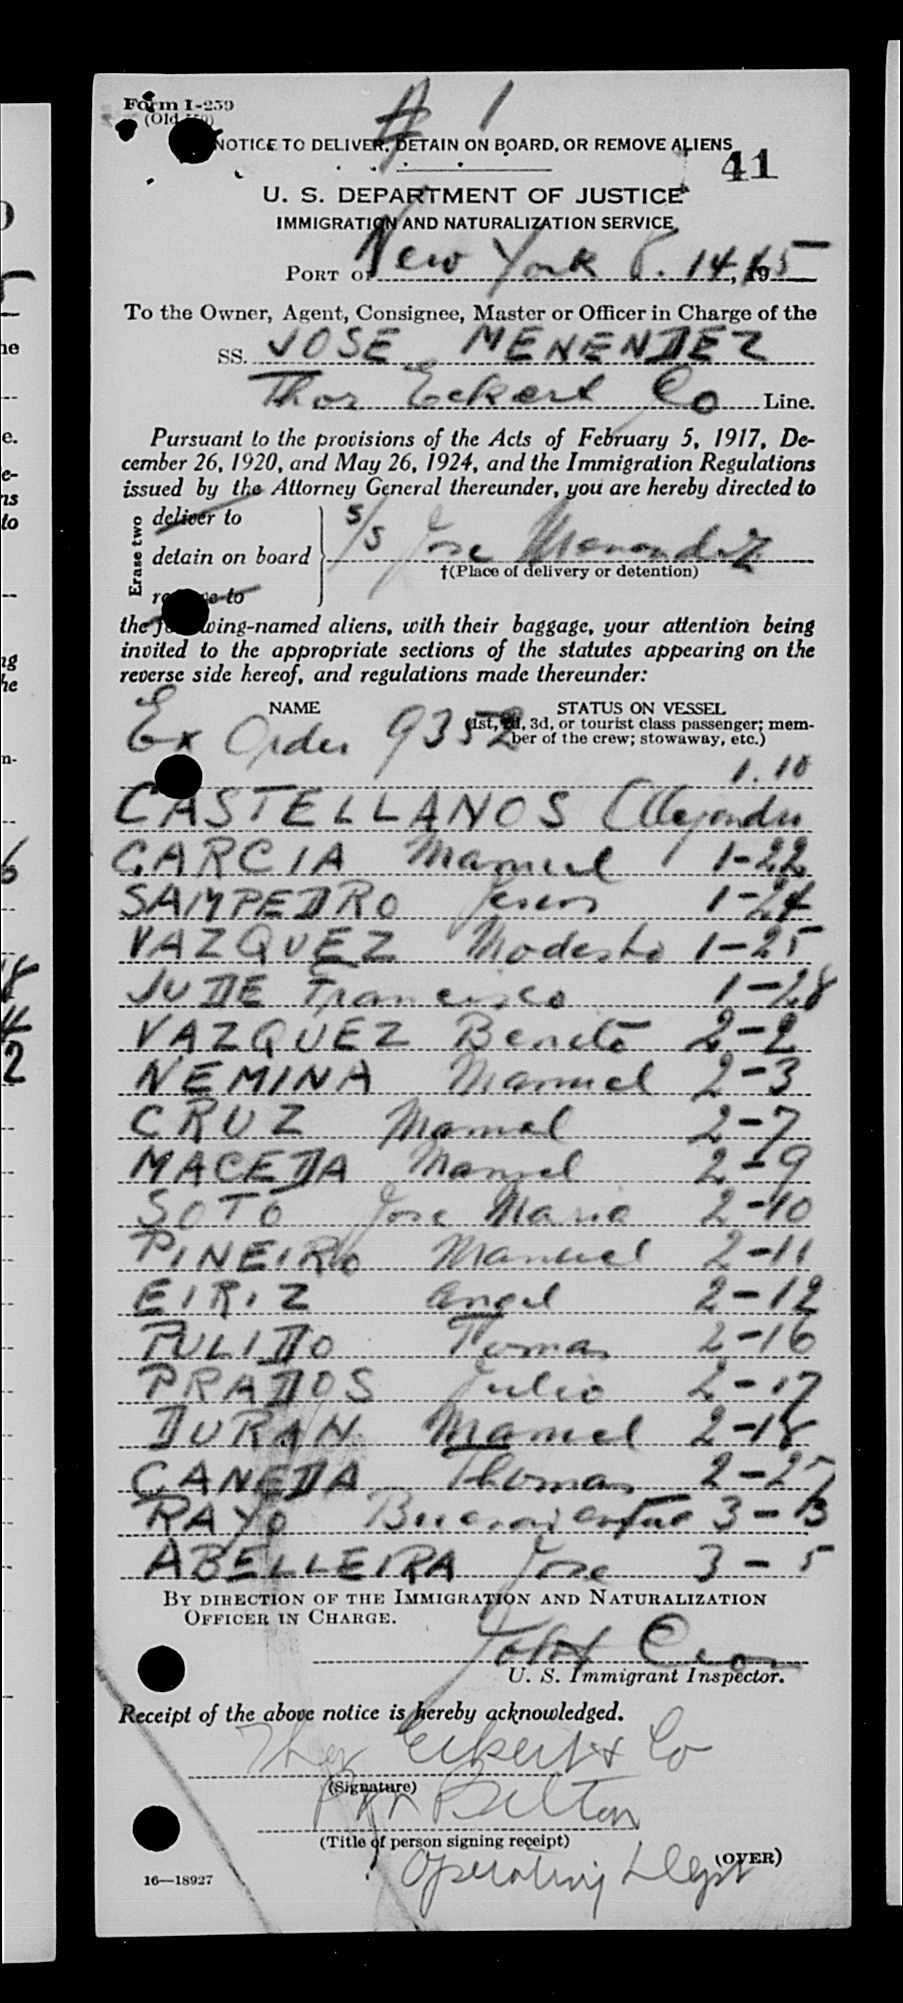 Form I-259
(Old
# 1
NOTICE TO DELIVER, DETAIN ON BOARD, OR REMOVE ALIENS
41
U. S. DEPARTMENT OF JUSTICE
IMMIGRATION AND NATURALIZATION SERVICE
PORT OF New York 8. 14, 1945
To the Owner, Agent, Consignee, Master or Officer in Charge of the
SS. JOSE MENENDEZ
Thor Eckert Co Line.
Pursuant to the provisions of the Acts of February 5, 1917, De-
cember 26, 1920, and May 26, 1924, and the Immigration Regulations
issued by the Attorney General thereunder, you are hereby directed to
Erase two
deliver to
detain on board
S/S Jose Menendez
†(Place of delivery or detention)
to
the wing-named aliens, with their baggage, your attention being
invited to the appropriate sections of the statutes appearing on the
reverse side hereof, and regulations made thereunder:
NAME STATUS ON VESSEL
(1st, 2d, 3d, or tourist class passenger; mem-
ber of the crew; stowaway, etc.)
Ex Order 9352
1.10
CASTELLANOS Alejandro
GARCIA Manuel 1-22
SAMPEDRO Jesus 1-24
VAZQUEZ Modesto 1-25
JUDE Francisco 1-28
VAZQUEZ Benito 2-2
NEMINA Manuel 2-3
CRUZ Manuel 2-7
MACEDA Manuel 2-9
SOTO Jose Maria 2-10
PINEIRO Manuel 2-11
EIRIZ Angel 2-12
PULIDO Tomas 2-16
PRADOS Julio 2-17
DURAN Manuel 2-18
CANEDA Thomas 2-27
RAYO Buenaventura 3-3
ABELLEIRA Jose 3-5
BY DIRECTION OF THE IMMIGRATION AND NATURALIZATION
OFFICER IN CHARGE.
U. S. Immigrant Inspector.
Receipt of the above notice is hereby acknowledged.
Thor Eckert & Co
(Signature)
(Title of person signing receipt)
Operating Dept
(OVER)
16—18927